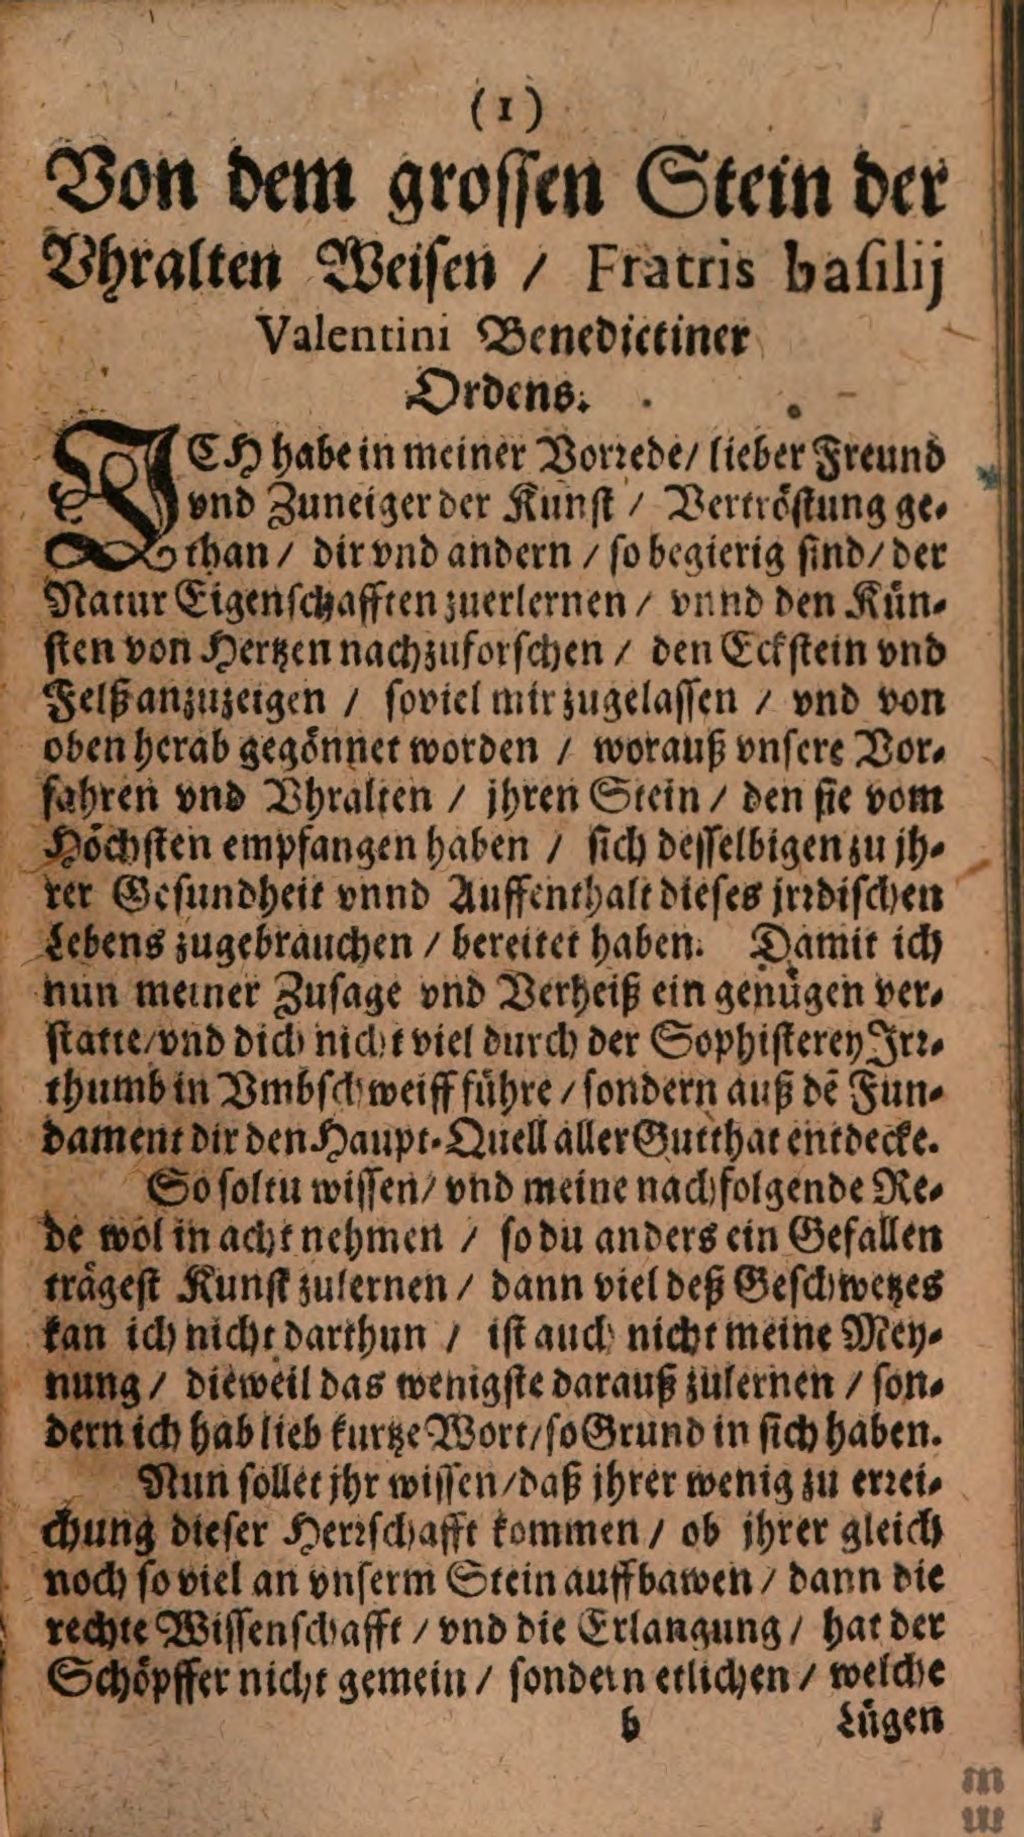 (1)
Von dem grossen Stein der
Vhralten Weisen / Fratris basilij
Valentini Benedictiner
Ordens.
ICH habe in meiner Vorrede / lieber Freund
vnd Zuneiger der Kunst / Vertröstung ge-
than / dir vnd andern / so begierig sind / der
Natur Eigenschafften zuerlernen / vnnd den Kün-
sten von Hertzen nachzuforschen / den Eckstein vnd
Felß anzuzeigen / soviel mir zugelassen / vnd von
oben herab gegönnet worden / worauß vnsere Vor-
fahren vnd Vhralten / jhren Stein / den sie vom
Höchsten empfangen haben / sich desselbigen zu jh-
rer Gesundheit vnnd Auffenthalt dieses jrrdischen
Lebens zugebrauchen / bereitet haben. Damit ich
nun meiner Zusage vnd Verheiß ein genügen ver-
statte / vnd dich nicht viel durch der Sophisterey Irr-
thumb in Vmbschweiff führe / sondern auß dē Fun-
dament dir den Haupt-Quell aller Gutthat entdecke.
So soltu wissen / vnd meine nachfolgende Re-
de wol in acht nehmen / so du anders ein Gefallen
trägest Kunst zulernen / dann viel deß Geschwetzes
kan ich nicht darthun / ist auch nicht meine Mey-
nung / dieweil das wenigste darauß zulernen / son-
dern ich hab lieb kurtze Wort / so Grund in sich haben.
Nun sollet jhr wissen / daß jhrer wenig zu errei-
chung dieser Herrschafft kommen / ob jhrer gleich
noch so viel an vnserm Stein auffbawen / dann die
rechte Wissenschafft / vnd die Erlangung / hat der
Schöpffer nicht gemein / sondern etlichen / welche
b Lügen